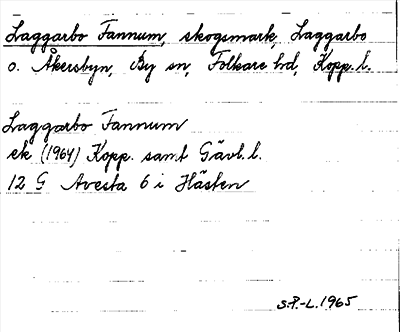 Laggarbo Fannum, skogsmark, Laggarbo
o. Åkersbyn, By sn, Folkare hd, Kopp. l.
Laggarbo Fannum
ek (1964) Kopp. samt Gävl. l.
12 G Avesta 6 i Hästen
S.P.-L. 1965